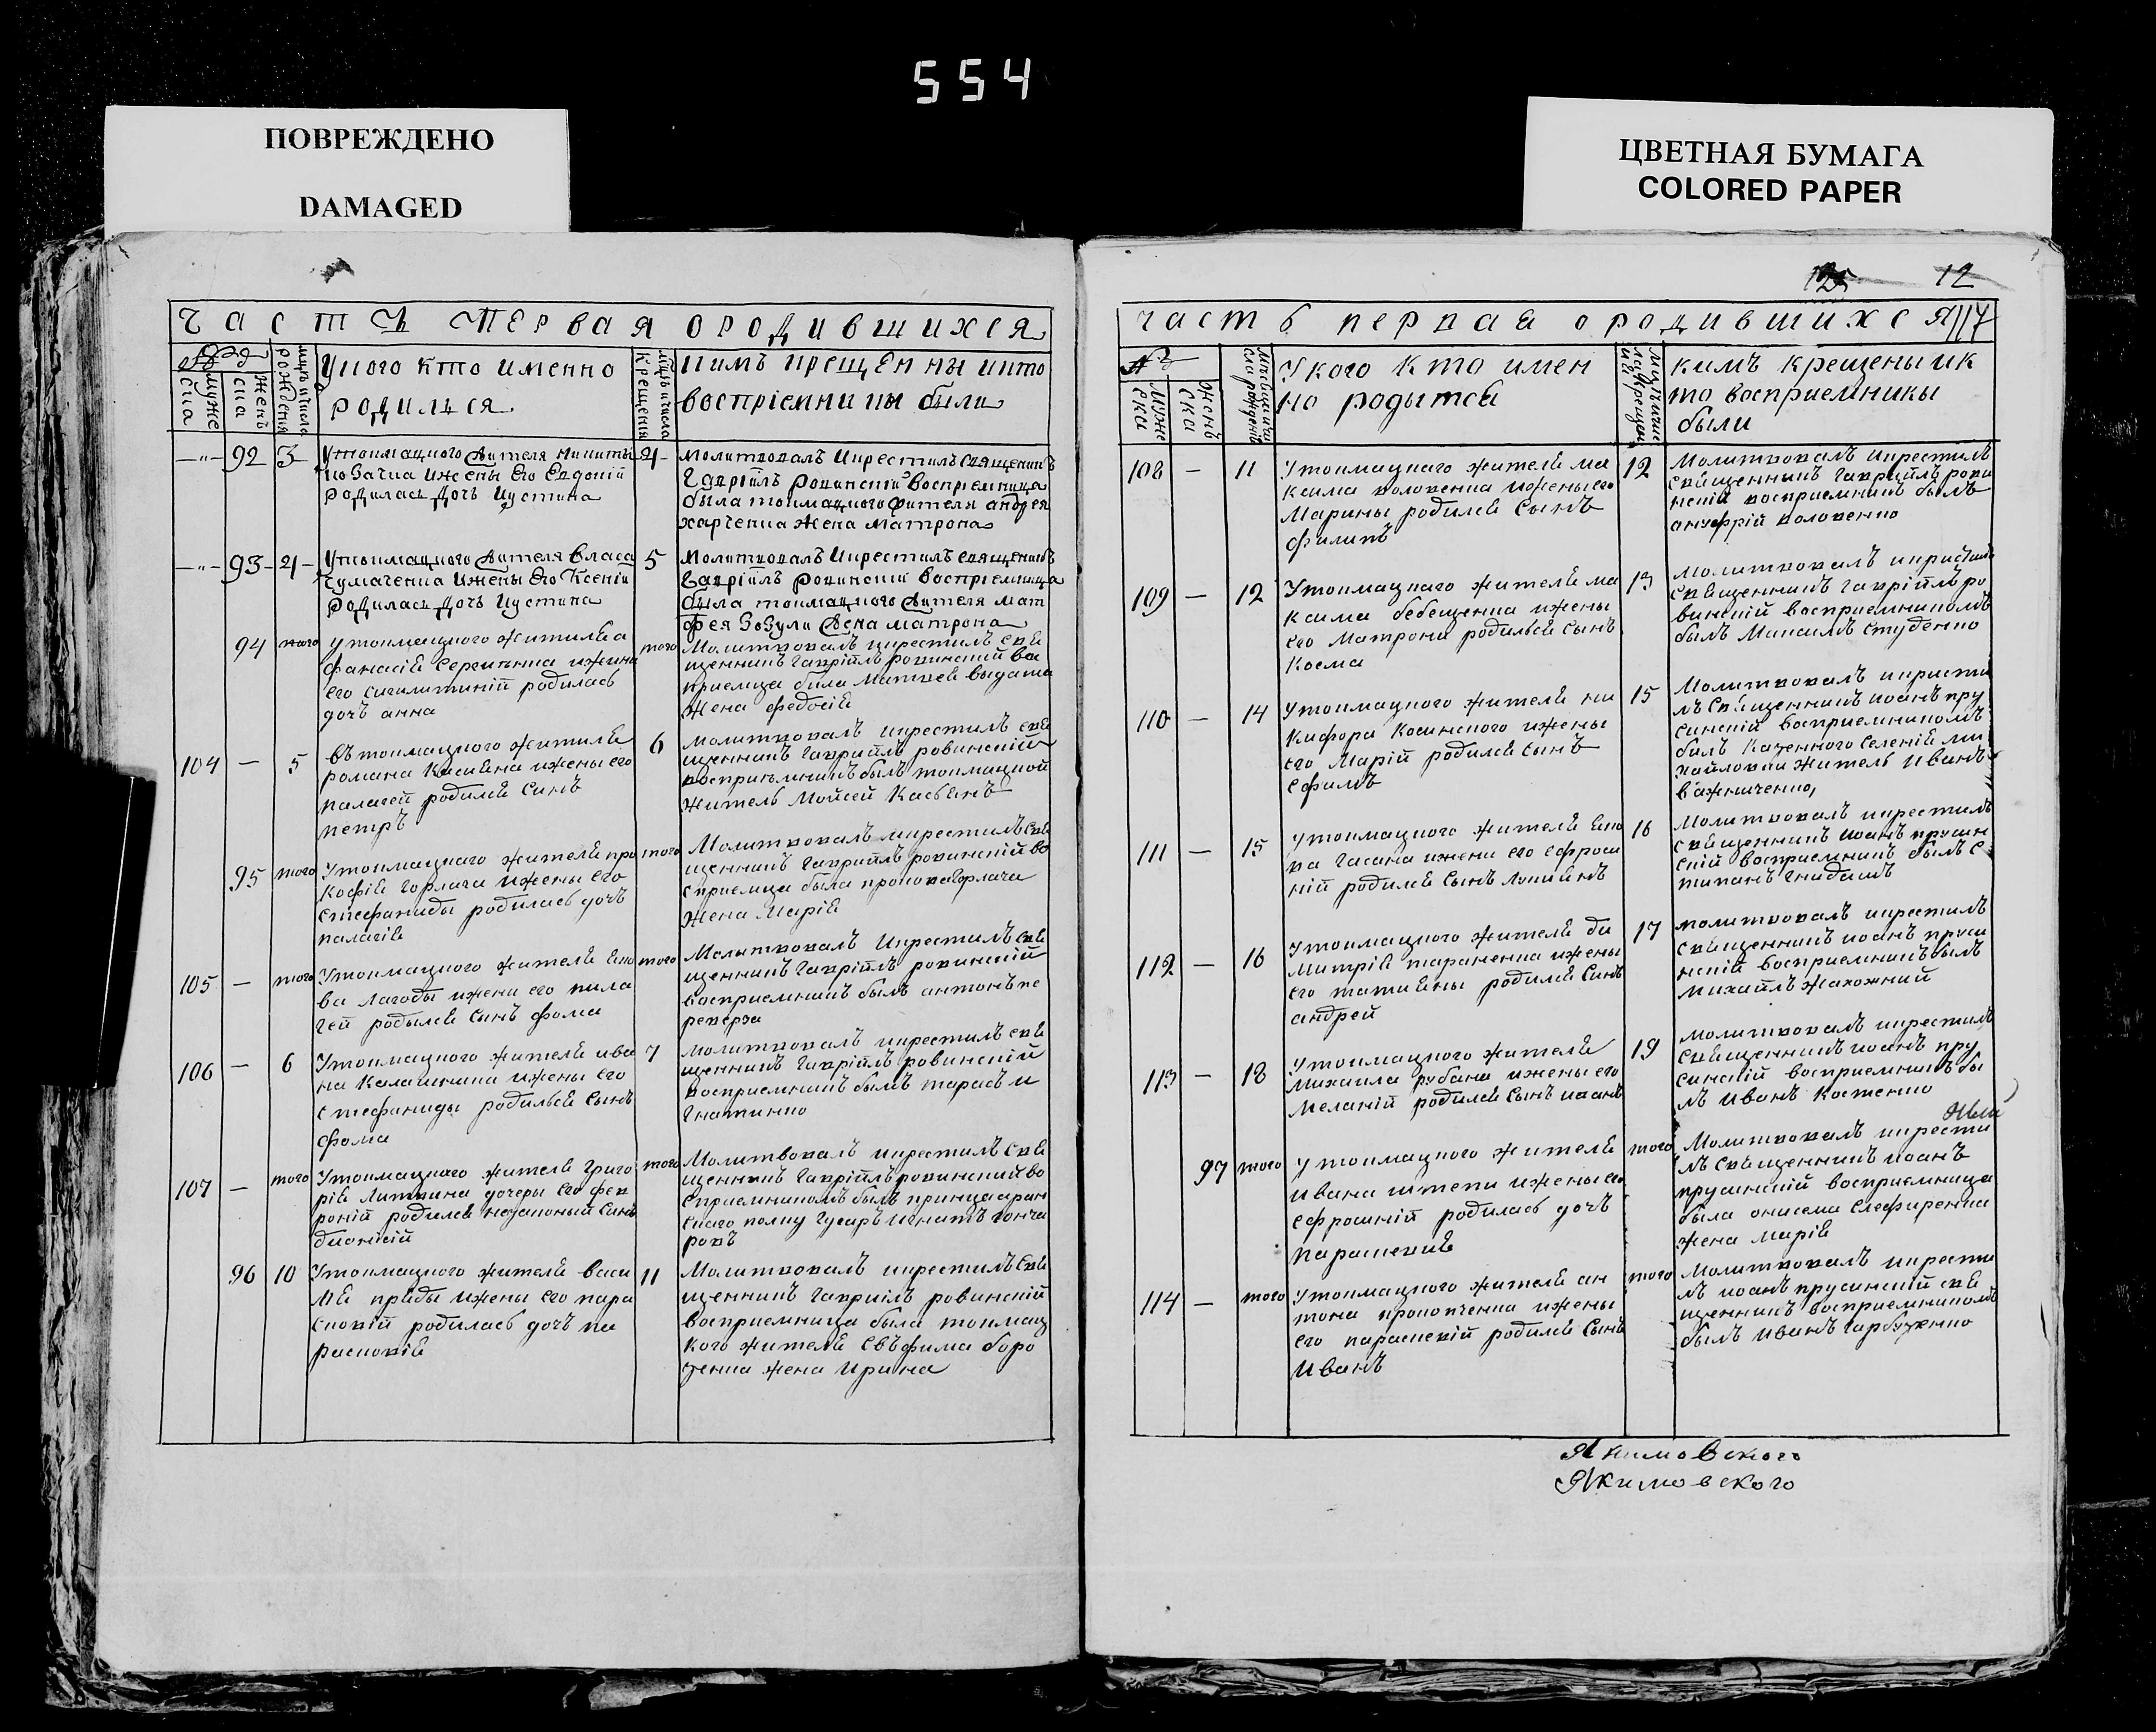 554
ПОВРЕЖДЕНО
DAMAGED
ЦВЕТНАЯ БУМАГА
COLORED PAPER
часть первая ородившихся
муже
ска
женъ
ска
мцъ ичисла
рождения
Укого кто именно
родился
мцъ ичисла
крещения
кимъ крещенны икто
воспріемники были
92 3 Утокмацкого жителя никиты
Козачка ижены Его Евдокіи
родилась дочь Иустина
4 молитвовалъ икрестилъ священикъ
Гавріилъ ровинскій воспріемница
была токмацкого жителя андрея
харченка жена матрона
93 4 Утокмацкого жителя власа
Чумаченка ижены Его Ксеніи
родилась дочь Иустина
5 молитвовалъ икрестилъ священикъ
Гавріилъ ровинскій воспріемница
была токмацкого жителя мат
фея Зозули жена матрона
94 того утокмацкого жителя а
фанасія ижени
его родилась
дочь анна
того Молитвовалъ икрестилъ свя
щенникъ гавріилъ ровинскій вос
приемца била
жена федосія
104 — 5 вътокмацкого жителя
романа Касияна ижены его
палагеи родился Синъ
петръ
6 молитвовалъ икрестилъ свя
щенникъ гавріилъ ровинскій
восприемникъ былъ токмацкой
житель Мойсей Касьянъ
95 того Утокмацкаго жителя про
кофія горлача ижены его
стефаниды родилась дочь
палагія
того Молитвовалъ икрестилъ свя
щенникъ гавріилъ ровинскій во
сприемца была прокопа Горлача
жена Марія
105 — того Утокмацкого жителя яко
ва Лагоды ижени его пила
геи родылся сынъ фома
того Молытвовалъ Икрестилъ свя
щенникъ гавріилъ ровинскій
восприемникъ былъ антонъ пе
реверза
106 — 6 Утокмацкого жителя ива
на Калашника ижены его
стефаниды родилься сынъ
фома
7 молитвовалъ икрестилъ свя
щенникъ гавріилъ ровинскій
восприемникъ былъ тарасъ и
гнатинко
107 — того Утокмацкаго жителя григо
рія Литвина дочеры его фев
роніи родился незаконый синъ
дионисій
того Молитвовалъ икрестилъ свя
щенникъ гавріилъ ровинскій во
сприемникомъ былъ принца оран
скаго полку гусаръ Игнатъ гонча
ровъ
96 10 Утокмацкого жителя васи
лія прыды ижены его пара
сковіи родилась дочъ па
расковія
11 Молитвовалъ икрестилъ свя
щенникъ гавриилъ ровинскій
восприемница была токмац
кого жителя Евъфима боро
денка жена Ирина
12
часть первая ородившихся 117
№
Муже
ска
женъ
ска
Укого кто имен
но родытся
кимъ крещены ик
то восприемникы
были
108 — 11 Утокмацкаго жителя ма
ксима коловенка ижены его
Марины родился сынъ
филипъ
12 Молитвовалъ икрестилъ
священникъ гавріилъ рови
нскій восприемникъ былъ
ануфрій коловенко
109 — 12 Утокмацкаго жителя ма
ксима бебещенка ижены
его Матроны родилься сынъ
Косма
13 Молитвовалъ икристилъ
священникъ гавріилъ ро
винскій восприемникомъ
былъ Михаилъ Студенко
110 — 14 Утокмацкого жителя ни
кифора Косинского ижены
его Маріи родился сынъ
ефимъ
15 Молитвовалъ икристи
лъ священникъ иоанъ пру
синскій восприемникомъ
билъ Казенного селенія ми
хайловки житель Иванъ
важниченко,
111 — 15 Утокмацкого жителя яко
ва гасана ижени его ефроси
ніи родился сынъ лукиянъ
16 Молитвовалъ икрестилъ
священникъ иоанъ прусин
скій восприемникъ былъ с
типанъ гнидашъ
112 — 16 Утокмацкого жителя ди
митрія тараненка ижены
его татияны родился синъ
андрей
17 молитвовалъ икрестилъ
священникъ иоанъ пруси
нскій восприемникъ былъ
михайлъ жахожний
113 — 18 Утокмацкого жителя
михаила рубана ижены его
меланіи родился сынъ иоанъ
19 молитвовалъ икрестилъ
священникъ иоанъ пру
синскій восприемникъ бы
лъ Иванъ Костенко
97 того Утокмацкого жителя
ивана штепи ижены его
ефросиніи родилась дочъ
параскевия
того Молитвовалъ икрести
лъ священникъ иоанъ
прусинскій восприемница
была онисима Слефиренка
жена марія
114 — того Утокмацкого жителя ан
тона прокопченка ижены
его параскевіи родился сынъ
Иванъ
того Молитвовалъ икрести
лъ иоанъ прусинскій свя
щенникъ восприемникомъ
былъ иванъ гарбузенко
Якимовского
Якимовского